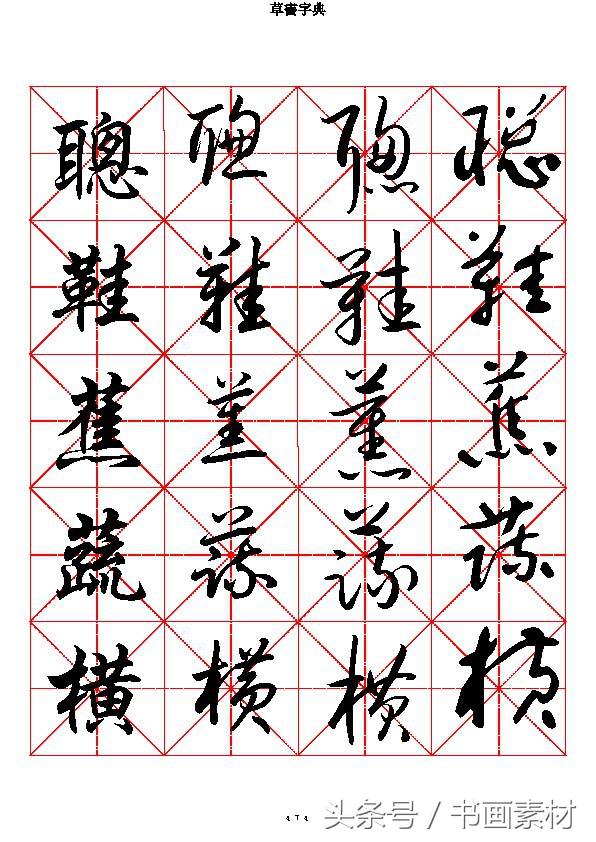 草書字典
聰 聰 聰 聰
鞋 鞋 鞋 鞋
蕉 蕉 蕉 蕉
蔬 蔬 蔬 蔬
橫 橫 橫 橫
头条号 / 书画素材